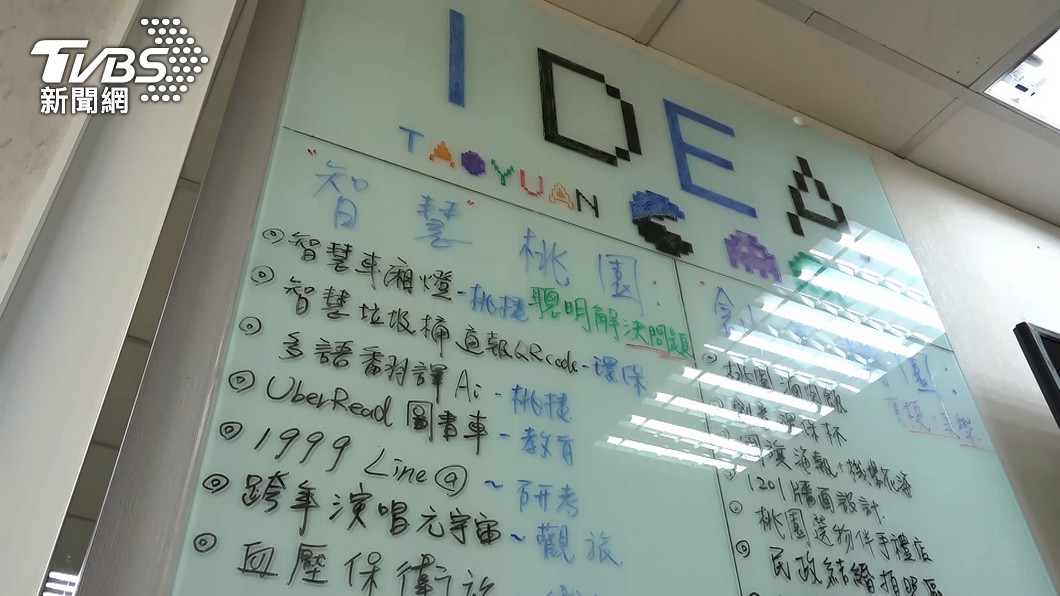 TVBS
新聞網
IDEA
TAOYUAN
"智慧"桃園:
聰明解決問題
◎智慧車廂燈-桃捷
◎智慧垃圾桶直報QRcode-環保
◎多語翻譯Ai-桃捷
◎UberRead圖書車-教育
◎1999 Line@~研考
◎跨年演唱元宇宙~觀旅
◎血壓保衛
園:
桃園海
環保杯
國旗海報
1201牆面設計
桃園選物伴手禮店
◎民政結婚拍照區